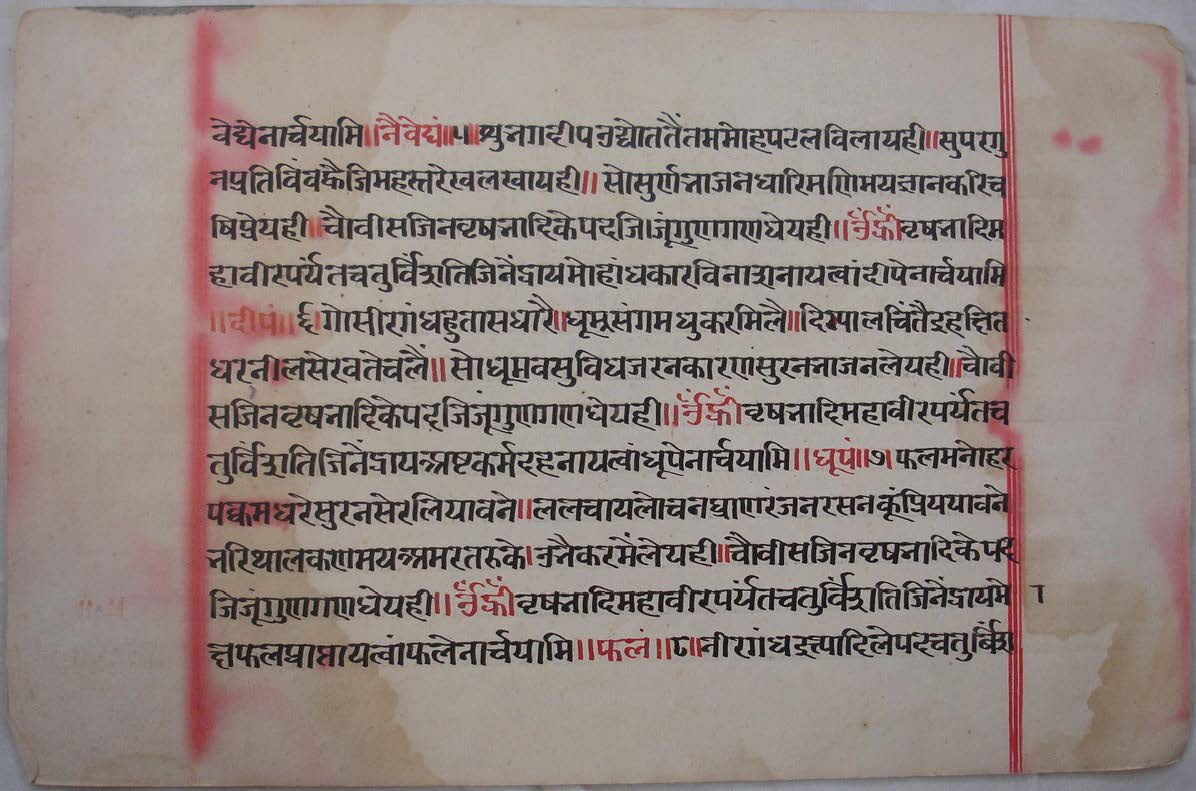 वेद्येनार्चयामि॥नैवेद्यं॥५॥थुनगदीपउद्योततैंतममोहपटलविलायही॥सुपरगु
नप्रतिविंवकैजिमहस्तरेखलखायही॥सोसुर्णभाजनधारिमणिमय
षिप्रेयही॥चौवीसजिनवृषभादिकेपदजिजूंगुणगणधेयही॥ॐह्रींवृषभादिम
हावीरपर्यंतचतुर्विंशतिजिनेंद्रायमोहांधकारविनाशनायत्वांदीपेनार्चयामि
॥दीपं॥६॥गोसीरगंधहुतासधारै॥धूम्रसंगमधुकरमिलै॥दिग्पालचिंतैदहक्षित
धरनीलसेखतेचलैं॥सोधूमवसुविधजरनकारणसुरनभाजनलेयही॥चौवी
सजिनवृषभादिकेपदजिजूंगुणगणधेयही॥ॐह्रींवृषभादिमहावीरपर्यंतच
तुर्विंशतिजिनेंद्रायअष्टकर्मदहनायत्वांधूपेनार्चयामि॥धूपं॥७॥फलमनोहर
पक्वमधरेसुरनसेरलियावने॥ललचायलोचनघ्राणरंजनरसनकूंप्रिययावने
भरिथालकणमयअमरतरुके।उभैकरमेंलेयही॥चौवीसजिनवृषभादिकेपद
जिजूंगुणगणधेयही॥ॐह्रींवृषभादिमहावीरपर्यंतचतुर्विंशतिजिनेंद्रायमो
क्षफलप्राप्तायत्वांफलेनार्चयामि॥फलं॥८॥नीरगंधइत्यादिलेपदचतुर्विंश